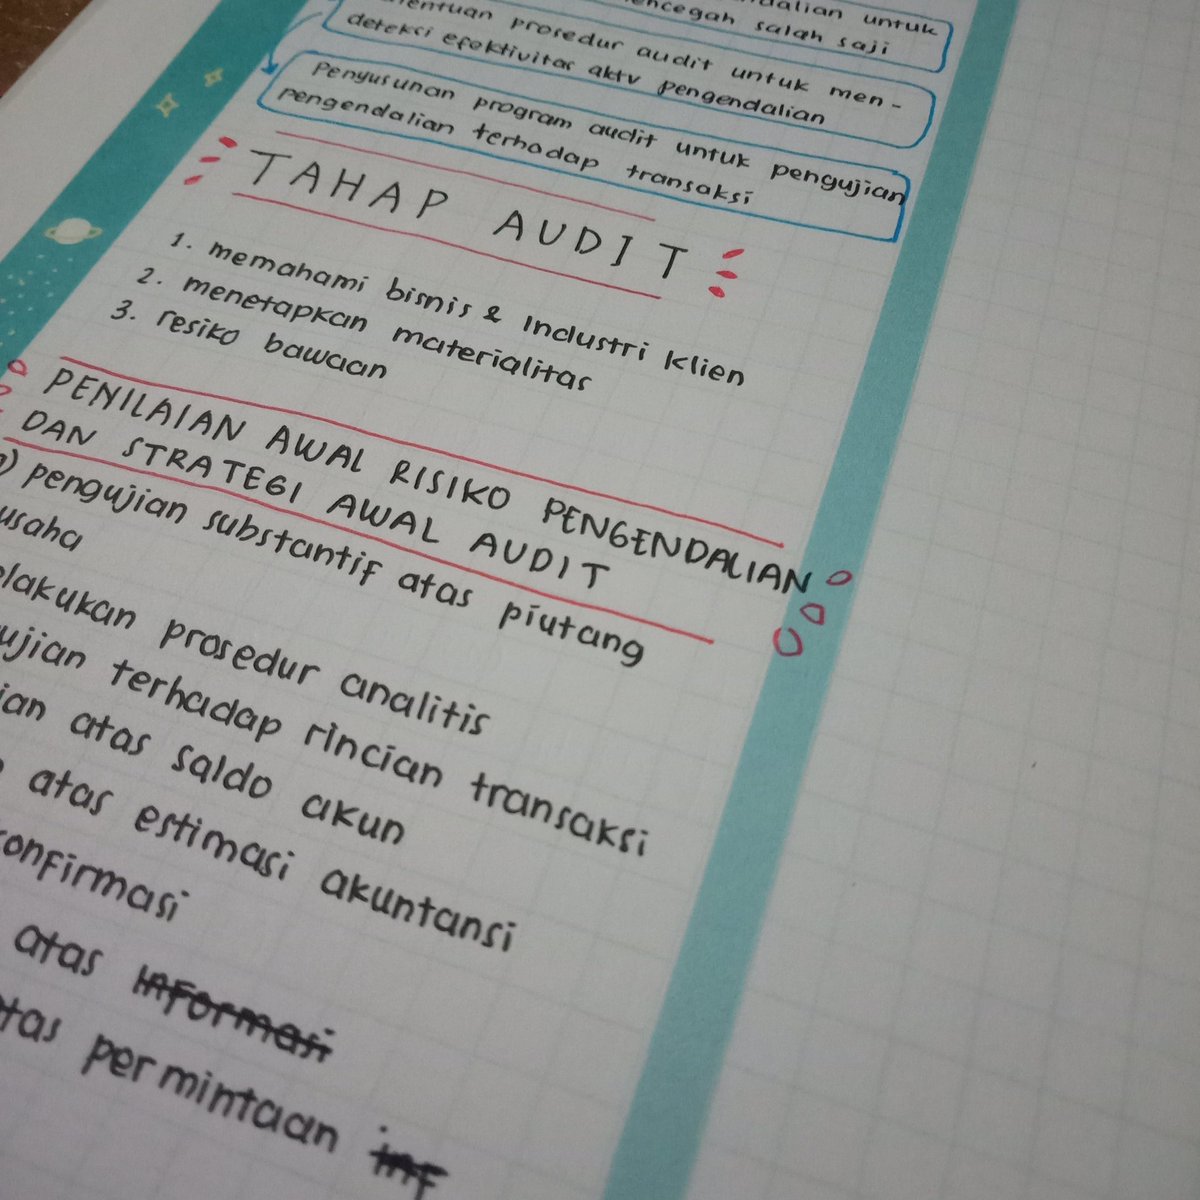 dalian untuk
mencegah salah saji
prosedur audit untuk men-
deteksi efektivitas aktv pengendalian
Penyusunan program audit untuk pengujian
pengendalian terhadap transaksi
TAHAP AUDIT
1. memahami bisnis & Industri Klien
2. menetapkan materialitas
3. resiko bawaan
PENILAIAN AWAL RISIKO PENGENDALIAN
DAN STRATEGI AWAL AUDIT
) pengujian substantif atas piutang
usaha
lakukan prosedur analitis
ujian terhadap rincian transaksi
ian atas saldo akun
atas estimasi akuntansi
konfirmasi
atas informasi
tas permintaan inf